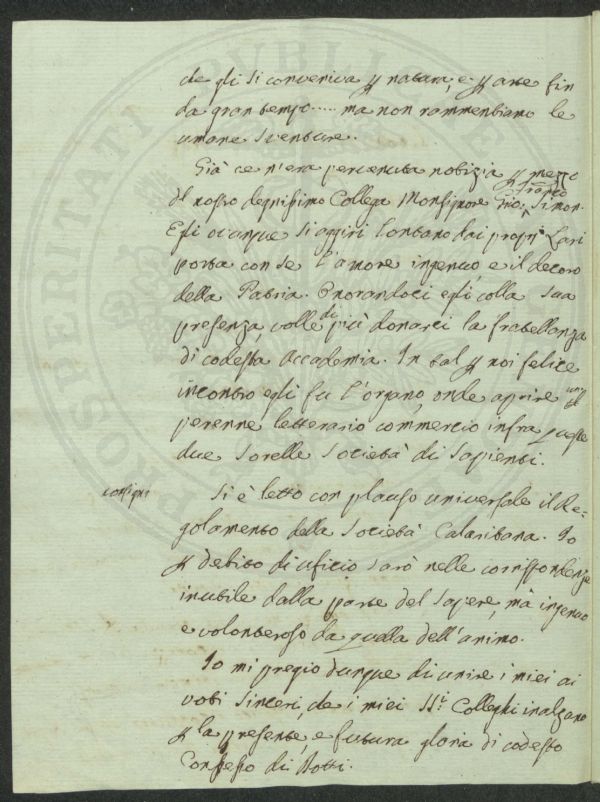 che gli si conveniva p natura, e p arte fin
da gran tempo..... ma non rammentiamo le
umane sventure.
Già ce n'era pervenuta notizia p mezzo
del nostro degnissimo Collega Monsignore Gio: Franco Simon.
Egli ovunque si aggiri lontano dai proprj Lari
porta con se l'amore ingenuo, e il decoro
della Patria. Onorandoci egli, colla sua
presenza, volle di più donarci la fratellanza
di codesta Accademia. In tal p noi felice
incontro egli fu l'organo, onde aprire un
perenne letterario commercio infra queste
due sorelle Società di Sapienti.
Si è letto con plauso universale il Re=
golamento della Società Calaritana. Io
p debito di uficio sarò nelle corrispondenze
inutile dalla parte del sapere, mà ingenuo
e volonteroso da quella dell'animo.
Io mi pregio dunque di unire i miei ai
voti sinceri, che i miei SS.i Colleghi inalzano
p la presente, e futura gloria di codesto
Consesso di Dotti.
PROSPERITATI PUBLICAE